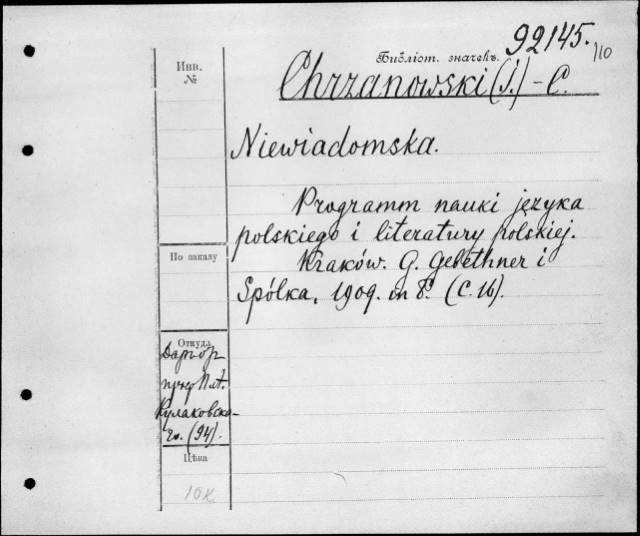 92145.
/10
Библіот. значекъ.
Инв.
№
Chrzanowski (I.) - C.
Niewiadomska.
Programm nauki języka
polskiego i literatury polskiej.
Kraków. G. Gebethner i
Spółka, 1909. in 8º. (C. 16).
По заказу
Откуда
Даръ ор
проф Пл.
Кулаковска-
го. (94).
Цѣна
10к